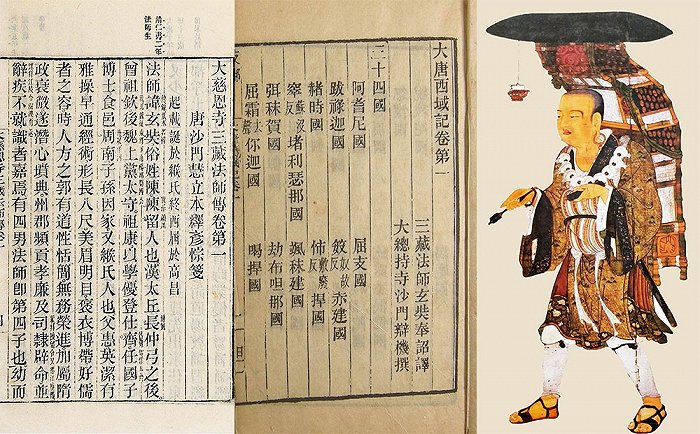 隋仁壽二年
法師生
大慈恩寺三藏法師傳卷第一
唐沙門慧立本釋彥悰箋
起載誕於緱氏終西屆於高昌
法師諱玄奘俗姓陳陳留人也漢太丘長仲弓之後
曾祖欽後魏上黨太守祖康以學優登仕齊任國子
博士食邑周南子孫因家又緱氏人也父惠英潔有
雅操早通經術形長八尺美眉明目褒衣博帶好儒
者之容時人方之郭有道性恬簡無務榮進加屬隋
政衰微遂潛心墳典州郡頻貢孝廉及司隸辟命並
辭疾不就識者嘉焉有四男法師即第四子也幼而
大唐西域記卷第一
三藏法師玄奘奉詔譯
大總持寺沙門辯機撰
三十四國
阿耆尼國 屈支國
跋祿迦國 笯奴故反赤建國
赭時國 㤄敷廢反捍國
窣蘇沒反堵利瑟那國 颯秣建國
弭秣賀國 劫布呾那國
屈霜去聲你迦國 喝捍國